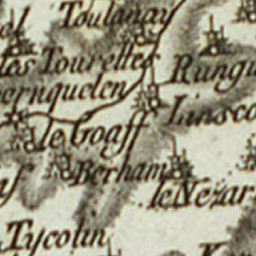 Toulanay
les Tourelles
Rungu
ernquelen
Linsco
le Goaff
Berham
le Nezar
Tycolin